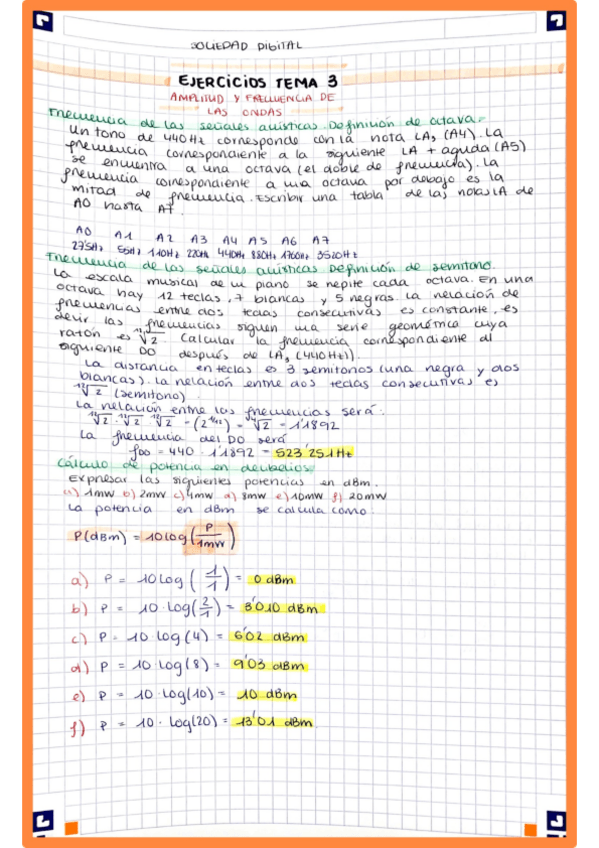 SOCIEDAD DIGITAL
EJERCICIOS TEMA 3
AMPLITUD Y FRECUENCIA DE
LAS ONDAS
Frecuencia de las señales acústicas. Definición de octava.
Un tono de 440Hz corresponde con la nota LA3 (A4). La
frecuencia correspondiente a la siguiente LA + aguda (A5)
se encuentra a una octava (el doble de frecuencia). La
frecuencia correspondiente a una octava por debajo es la
mitad de frecuencia. Escribir una tabla de las notas LA de
A0 hasta A7.
A0 A1 A2 A3 A4 A5 A6 A7
27'5Hz 55Hz 110Hz 220Hz 440Hz 880Hz 1760Hz 3520Hz
Frecuencia de las señales acústicas Definición de semitono.
La escala musical de un piano se repite cada octava. En una
octava hay 12 teclas, 7 blancas y 5 negras. La relación de
frecuencias entre dos teclas consecutivas es constante, es
decir las frecuencias siguen una serie geométrica cuya
ratón es ¹²√2. Calcular la frecuencia correspondiente al
siguiente DO después de LA3 (440Hz).
La distancia en teclas es 3 semitonos (una negra y dos
blancas). La relación entre dos teclas consecutivas es
¹²√2 (semitono).
La relación entre las frecuencias será:
¹²√2 · ¹²√2 · ¹²√2 = (2^(1/12)) = ⁴√2 = 1'1892
La frecuencia del DO será
fDO = 440 · 1'1892 = 523'251Hz
Cálculo de potencia en decibelios
Expresar las siguientes potencias en dBm.
a) 1mW b) 2mW c) 4mW d) 8mW e) 10mW f) 20mW
La potencia en dBm se calcula como:
P(dBm) = 10log(P/1mW)
a) P = 10log(1/1) = 0 dBm
b) P = 10·log(2/1) = 3'010 dBm
c) P = 10·log(4) = 6'02 dBm
d) P = 10·log(8) = 9'03 dBm
e) P = 10·log(10) = 10 dBm
f) P = 10·log(20) = 13'01 dBm.